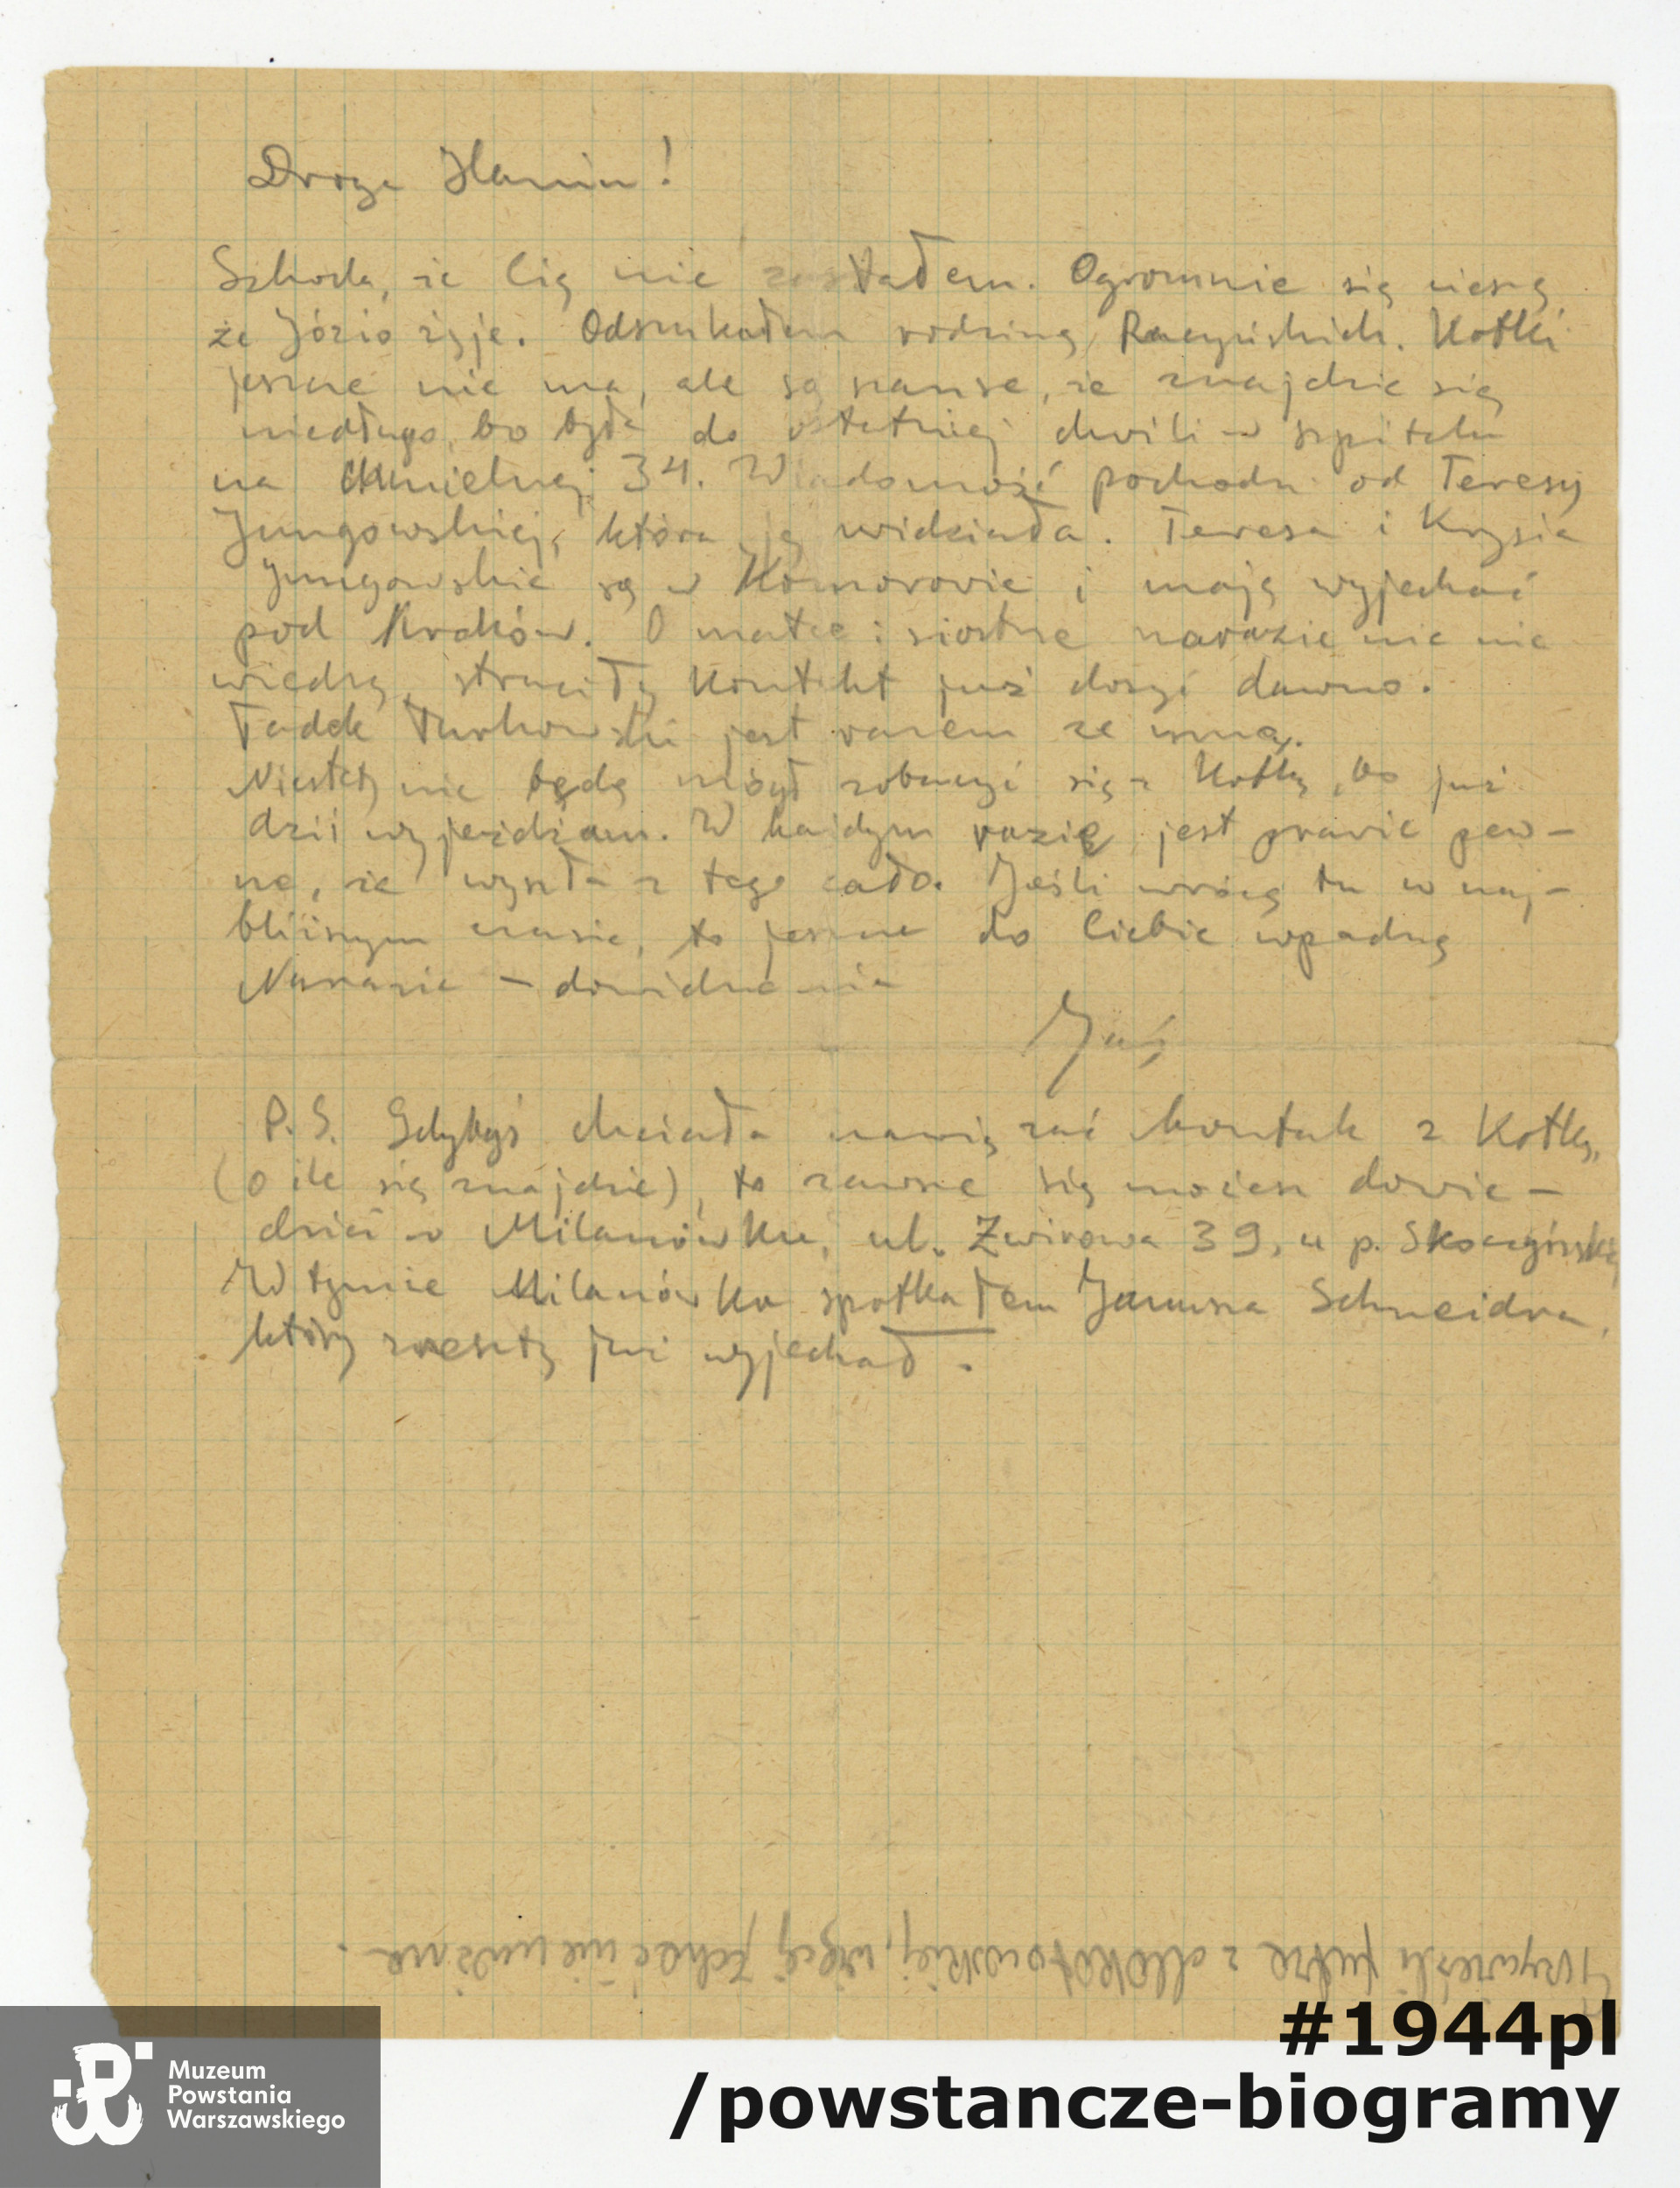 Droga Haniu!
Szkoda, że Cię nie zastałem. Ogromnie się cieszę
że Józio żyje. Odszukałem rodzinę Raczyńskich. Kotki
jeszcze nie ma, ale są szanse, że znajdzie się
niedługo, bo była do ostatniej chwili w szpitalu
na Chmielnej 34. Wiadomość pochodzi od Teresy
Jungowskiej, która ją widziała. Teresa i Krysia
Jungowskie są w Komorowie i mają wyjechać
pod Kraków. O matce i siostrze narazie nic nie
wiedzą, straciły kontakt już dosyć dawno.
Tadek Turkowski jest razem ze mną.
Niestety nie będę mógł zobaczyć się z Kotką, bo już
dziś wyjeżdżam. W każdym razie jest prawie pew-
ne, że wyszła z tego cało. Jeśli wrócę tu w naj-
bliższym czasie, to jeszcze do Ciebie wpadnę
Narazie - dowidzenia
Jaś
P.S. Gdybyś chciała nawiązać kontakt z Kotką,
(o ile się znajdzie), to zawsze się możesz dowie-
dzieć w Milanówku, ul. Żwirowa 39, u p.
W tymże Milanówku spotkałem Janusza Schneidra,
który zresztą już wyjechał.
Przywieźli futra z Mokotowskiej, więcej jechać nie można.
Muzeum
Powstania
Warszawskiego
#1944pl
/powstancze-biogramy